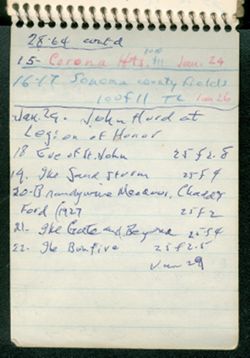 28-64 cont'd
15- Corona Hts. 100 ft Jan. 24
16-17 Sonoma County Fields
100 of 11 TC Jan 26
Jan. 29. John Hurd at
Legion of Honor
18 Eve of St. John 25 f 2.8
19. The Sand Storm 25 f 4
20- Brandywine Meadows, Chadds
Ford (1927 25 f 2
21. The Gate and Beyond 25 f 4
22. The Bonfire 25 f 2.5
Jan 29